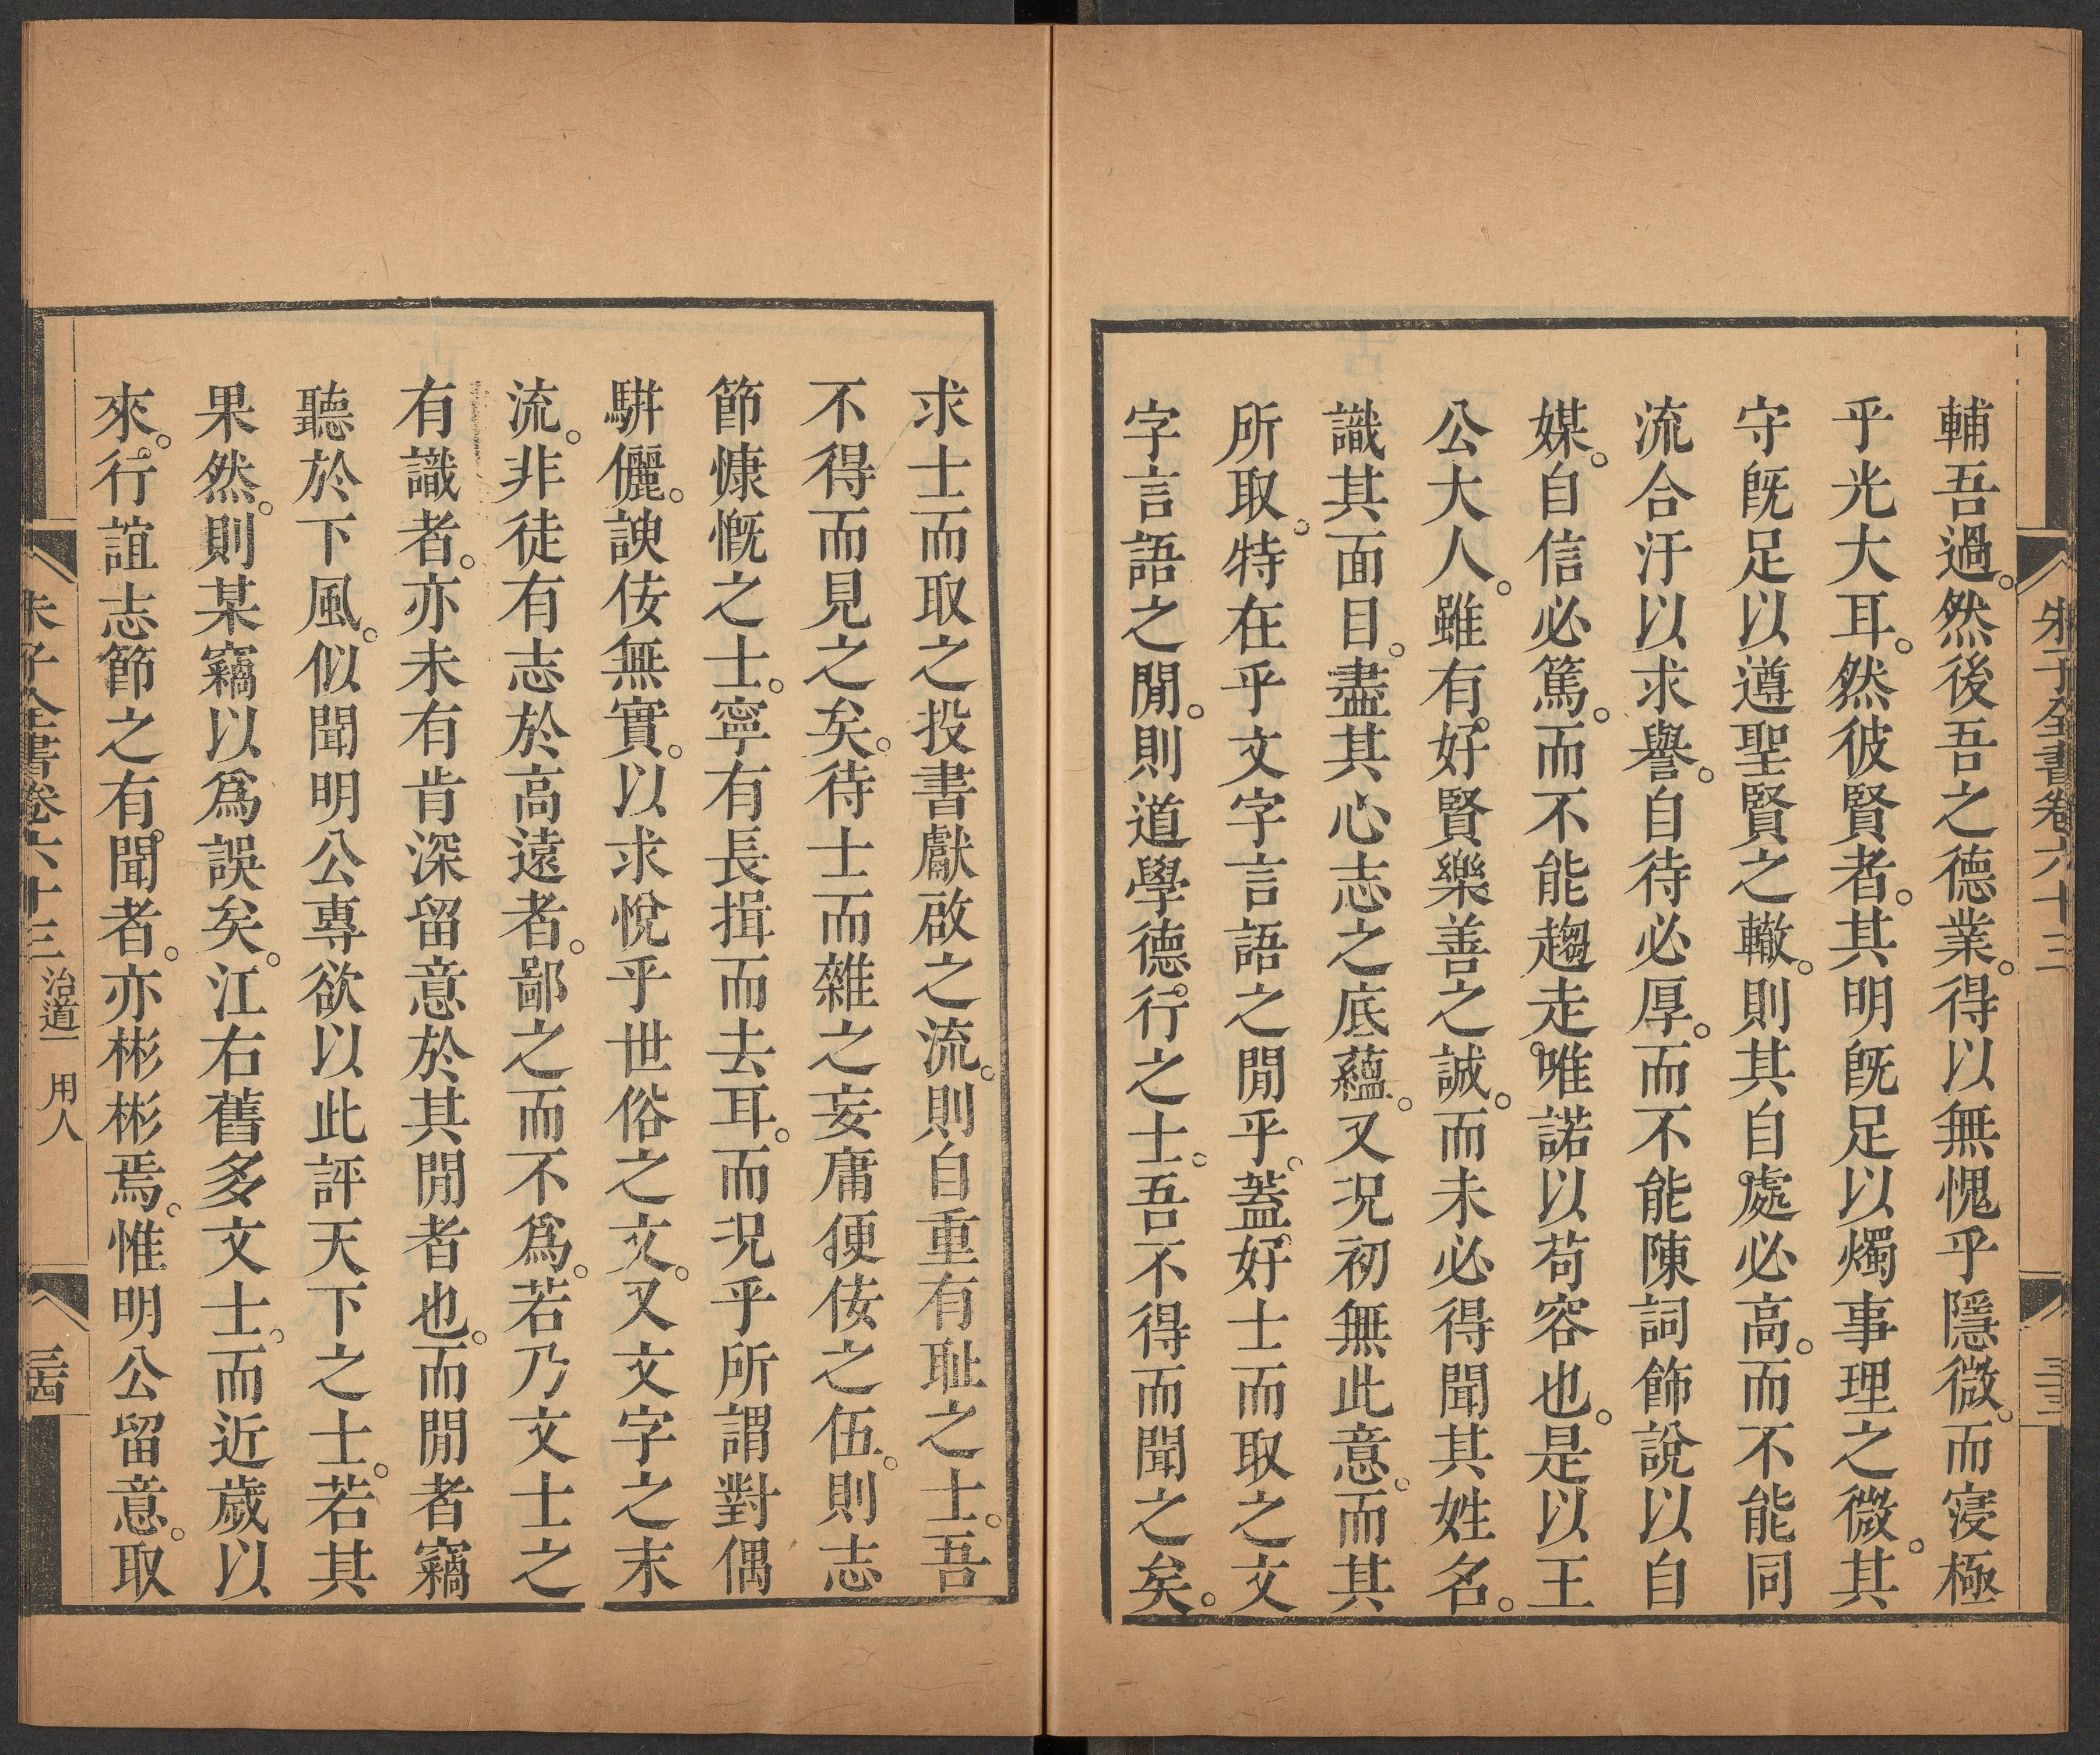 朱子全書卷六十三
輔吾過。然後吾之德業。得以無愧乎隱微。而寖極
乎光大耳。然彼賢者。其明旣足以燭事理之微。其
守旣足以遵聖賢之轍。則其自處必高。而不能同
流合汙以求譽。自待必厚。而不能陳詞飾說以自
媒。自信必篤。而不能趨走唯諾以苟容也。是以王
公大人。雖有好賢樂善之誠。而未必得聞其姓名。
識其面目。盡其心志之底蘊。又況初無此意。而其
所取。特在乎文字言語之閒乎。蓋好士而取之文
字言語之閒。則道學德行之士。吾不得而聞之矣。
求士而取之投書獻啟之流。則自重有耻之士。吾
不得而見之矣。待士而雜之妄庸便佞之伍。則志
節慷慨之士。寧有長揖而去耳。而況乎所謂對偶
駢儷。諛佞無實。以求悅乎世俗之文。又文字之末
流。非徒有志於高遠者。鄙之而不爲。若乃文士之
有識者。亦未有肯深留意於其閒者也。而閒者竊
聽於下風。似聞明公專欲以此評天下之士。若其
果然。則某竊以爲誤矣。江右舊多文士。而近歲以
來。行誼志節之有聞者。亦彬彬焉。惟明公留意。取
朱子全書卷六十三 治道一 用人 三四